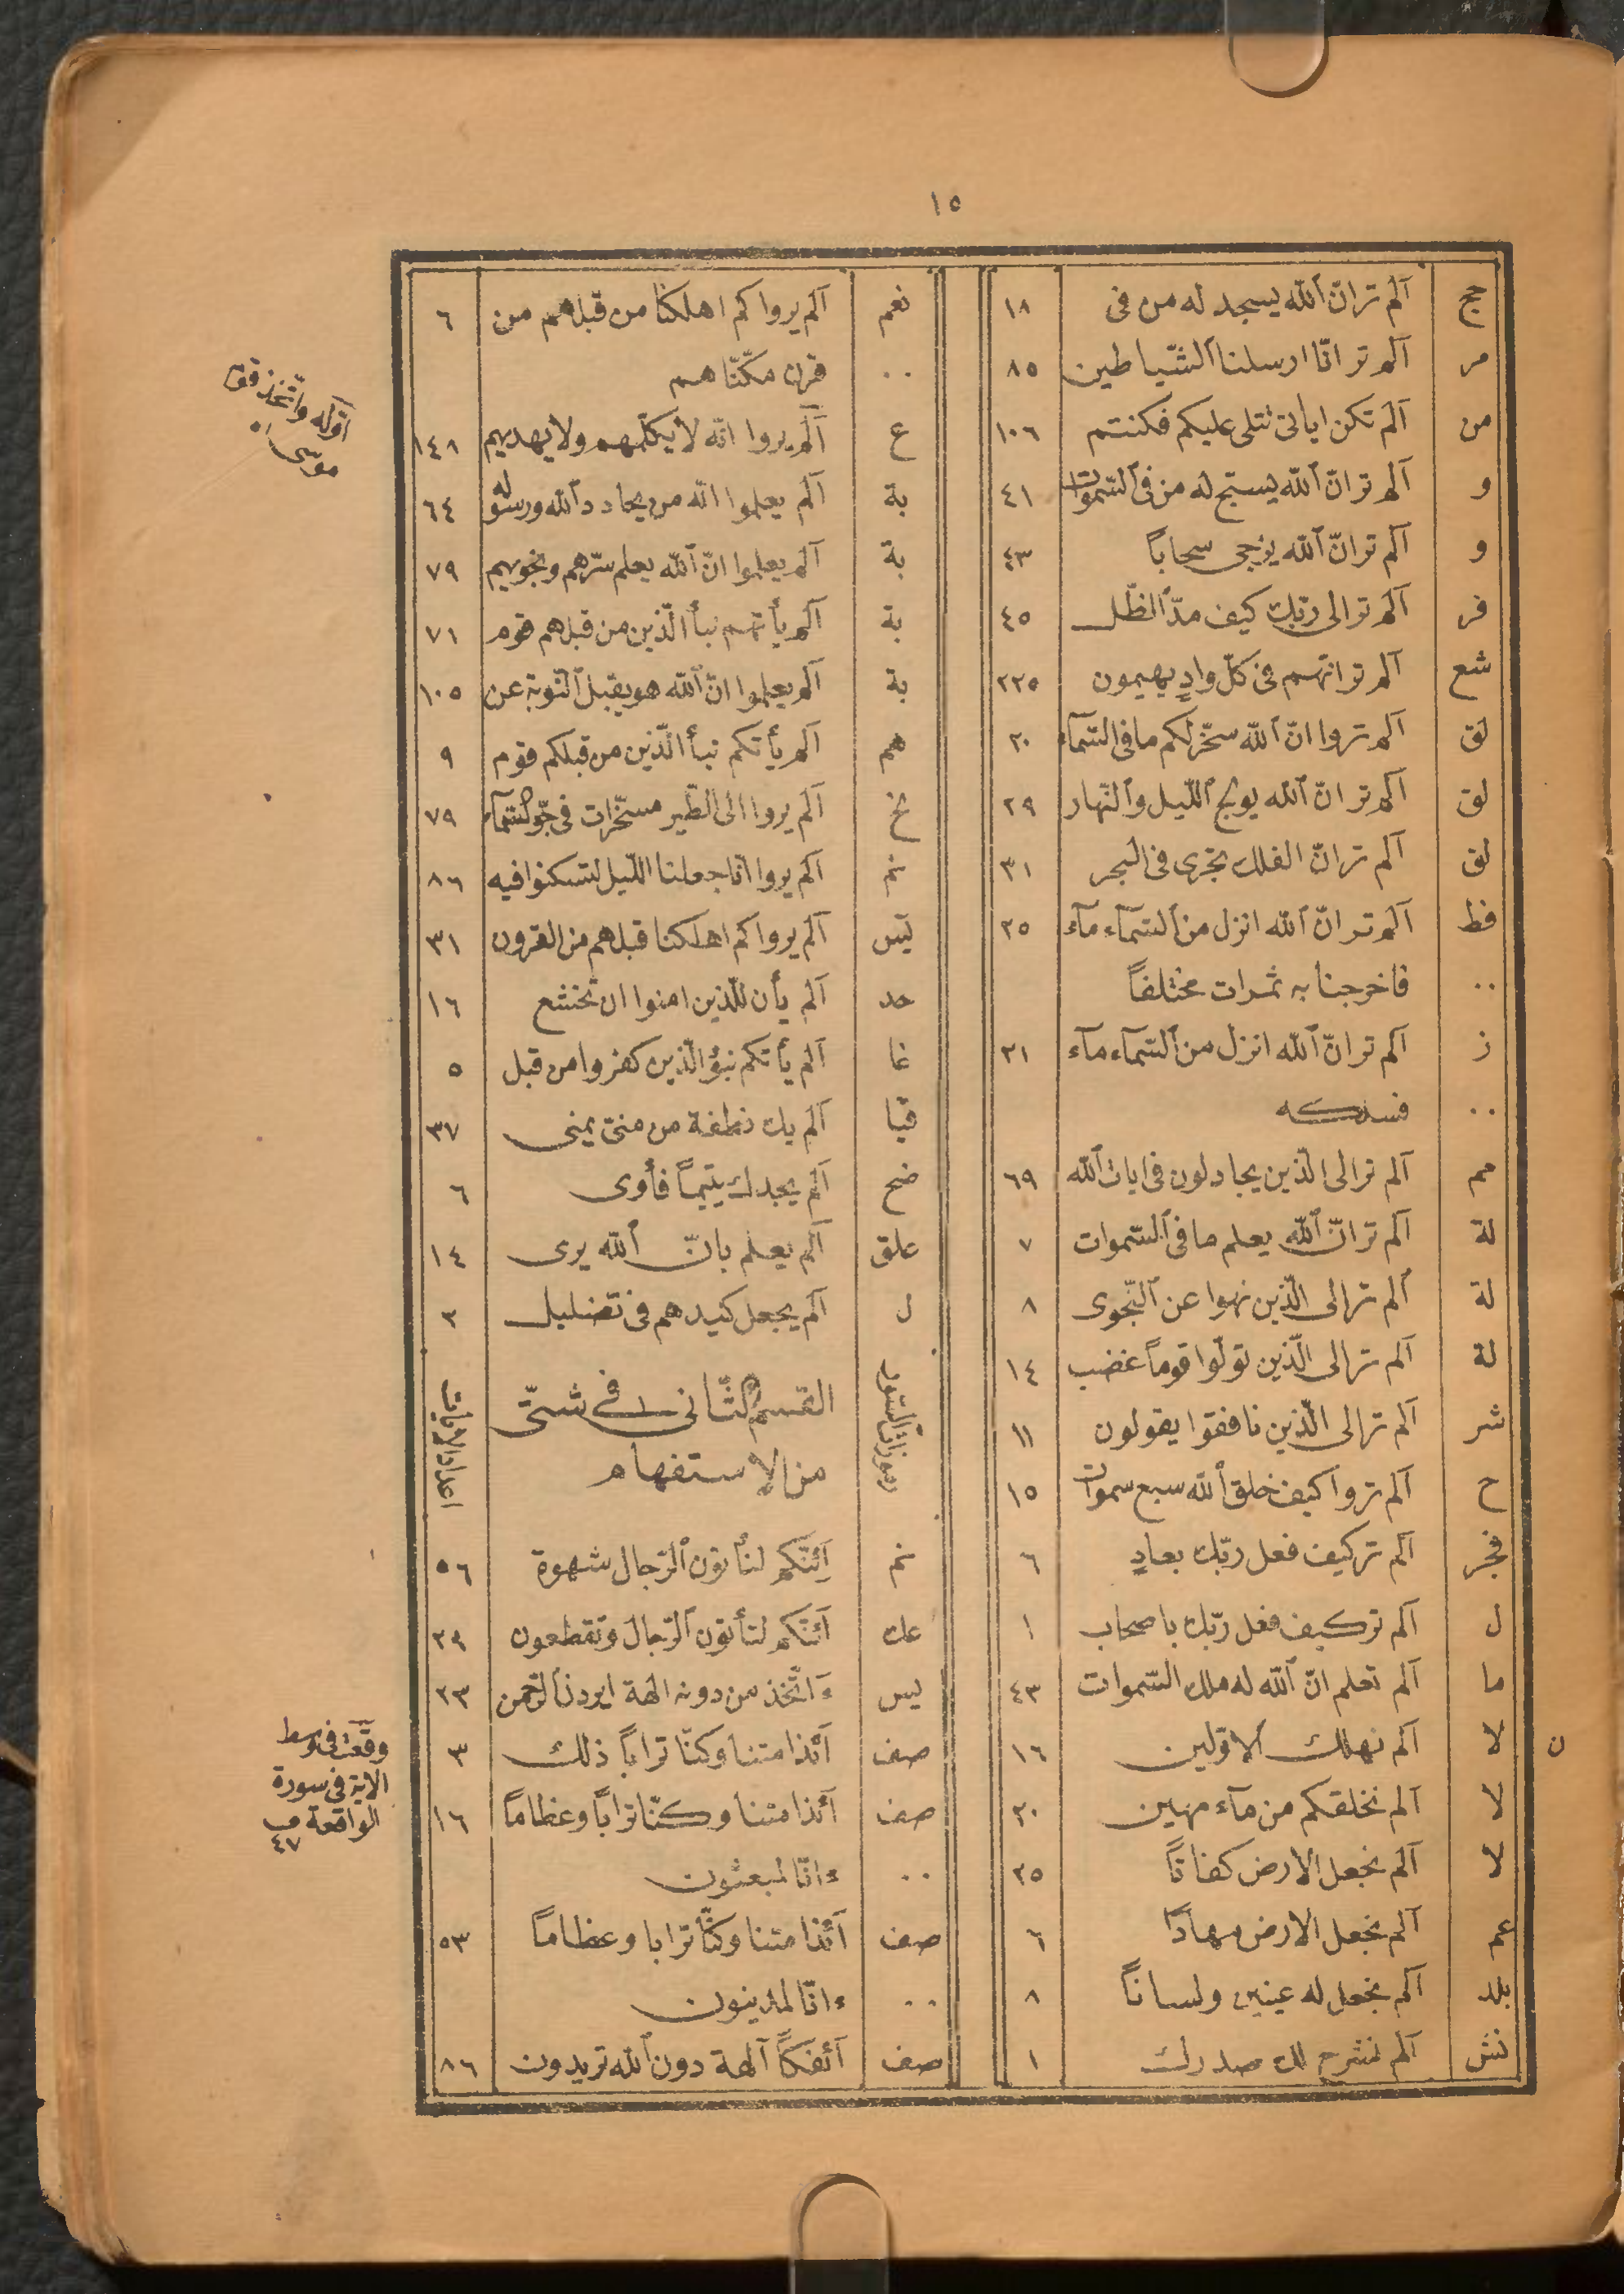 ١٥
حج آلم تر انّ ٱلله يسجد له من فى ١٨
مر آلم تر انّا ارسلنا ٱلشّياطين ٨٥
من آلم تكن اياتى تتلى عليكم فكنتم ١٠٦
و آلم تر انّ ٱلله يسبّح له من فى ٱلسّموات ٤١
و آلم تر انّ ٱلله يزجى سحاباً ٤٣
فر آلم تر الى ربّك كيف مدّ ٱلظّل ٤٥
شع آلم تر انّهم فى كلّ وادٍ يهيمون ٢٢٥
لق آلم تروا انّ ٱلله سخّر لكم ما فى السّمآء ٢٠
لق آلم تر انّ ٱلله يولج ٱللّيل وٱلنّهار ٢٩
لق آلم تر انّ الفلك تجرى فى البحر ٣١
فط آلم تر انّ ٱلله انزل من ٱلسّمآء مآء ٢٥
٠٠ فاخرجنا به ثمرات مختلفاً
ز آلم تر انّ ٱلله انزل من ٱلسّمآء مآء ٢١
٠٠ فسلكه
مم آلم تر الى الّذين يجادلون فى ايات ٱلله ٦٩
لة آلم تر انّ ٱلله يعلم ما فى ٱلسّموات ٧
لة آلم تر الى الّذين نهوا عن ٱلنّجوى ٨
لة آلم تر الى الّذين تولّوا قوماً غضب ١٤
شر آلم تر الى الّذين نافقوا يقولون ١١
ح آلم تروا كيف خلق ٱلله سبع سموات ١٥
فجر آلم تر كيف فعل ربّك بعادٍ ٦
ل آلم تر كيف فعل ربّك باصحاب ١
ما آلم تعلم انّ ٱلله له ملك السّموات ٤٣
لا آلم نهلك ٱلاوّلين ١٦
ن
لا آلم نخلقكم من مآء مهين ٢٠
لا آلم نجعل الارض كفاتاً ٢٥
عم آلم نجعل الارض مهاداً ٦
بلد آلم نجعل له عينين ولساناً ٨
نش آلم نشرح لك صدرك ١
نعم آلم يروا كم اهلكنا من قبلهم من ٦
٠٠ قرن مكّنّاهم
ع آلم يروا انّه لا يكلّمهم ولا يهديهم ١٤٨
اوّله واتّخذ قوم
موسى
بة آلم يعلموا انّه من يحادد ٱلله ورسوله ٦٤
بة آلم يعلموا انّ ٱلله يعلم سرّهم ونجويهم ٧٩
بة آلم يأتهم نبأ الّذين من قبلهم قوم ٧١
بة آلم يعلموا انّ ٱلله هو يقبل ٱلتّوبة عن ١٠٥
هم آلم يأتكم نبأ الّذين من قبلكم قوم ٩
نخ آلم يروا الى الطّير مسخّرات فى جوّ ٱلسّمآء ٧٩
نم آلم يروا انّا جعلنا اللّيل لتسكنوا فيه ٨٦
يس آلم يروا كم اهلكنا قبلهم من القرون ٣١
حد آلم يأن للّذين امنوا ان تخشع ١٦
غا آلم يأتكم نبؤ الّذين كفروا من قبل ٥
قيا آلم يك نطفة من منىّ يمنى ٣٧
ضح آلم يجدك يتيماً فأوى ٦
علق آلم يعلم بانّ ٱلله يرى ١٤
ل آلم يجعل كيدهم فى تضليل ٢
رموزات السّور القسم ٱلثّانى فى شتّى اعداد الايات
من الاستفهام
نم آئنّكم لتأتون ٱلرّجال شهوة ٥٦
عك آئنّكم لتأتون ٱلرّجال وتقطعون ٢٩
يس ءاتّخذ من دونه الهة ان يردن ٱلرّحمن ٢٣
صف آئذا متنا وكنّا تراباً ذلك ٣
صف آئذا متنا وكنّا تراباً وعظاماً ١٦
٠٠ ءانّا لمبعثون
وقعت فى وسط
الاية فى سورة
الواقعة
٤٧
صف آئذا متنا وكنّا ترابا وعظاماً ٥٣
٠٠ ءانّا لمدينون
صف آئفكاً آلهة دون ٱلله تريدون ٨٦